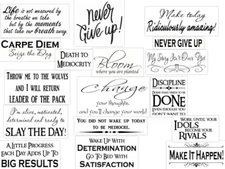 Life is not measured
by the breaths we take
but by the moments
that take our breath away.
never
Give up!
Make today
Ridiculously amazing!
NEVER GIVE UP
CARPE DIEM
Seize the Day
DEATH TO
MEDIOCRITY
Bloom
where you are planted
My Story Isn't Over Yet
THROW ME TO THE WOLVES
AND I WILL RETURN
LEADER OF THE PACK
Change
your thoughts,
and you'll change your world!
DISCIPLINE
DONE
I'm alive, motivated,
determined and ready to
SLAY THE DAY!
YOU DID NOT WAKE UP TODAY
TO BE MEDIOCRE.
WORK UNTIL YOUR
IDOLS
BECOME YOUR
RIVALS
A LITTLE PROGRESS
EACH DAY ADDS UP TO
BIG RESULTS
WAKE UP WITH
DETERMINATION
GO TO BED WITH
SATISFACTION
MAKE IT HAPPEN!